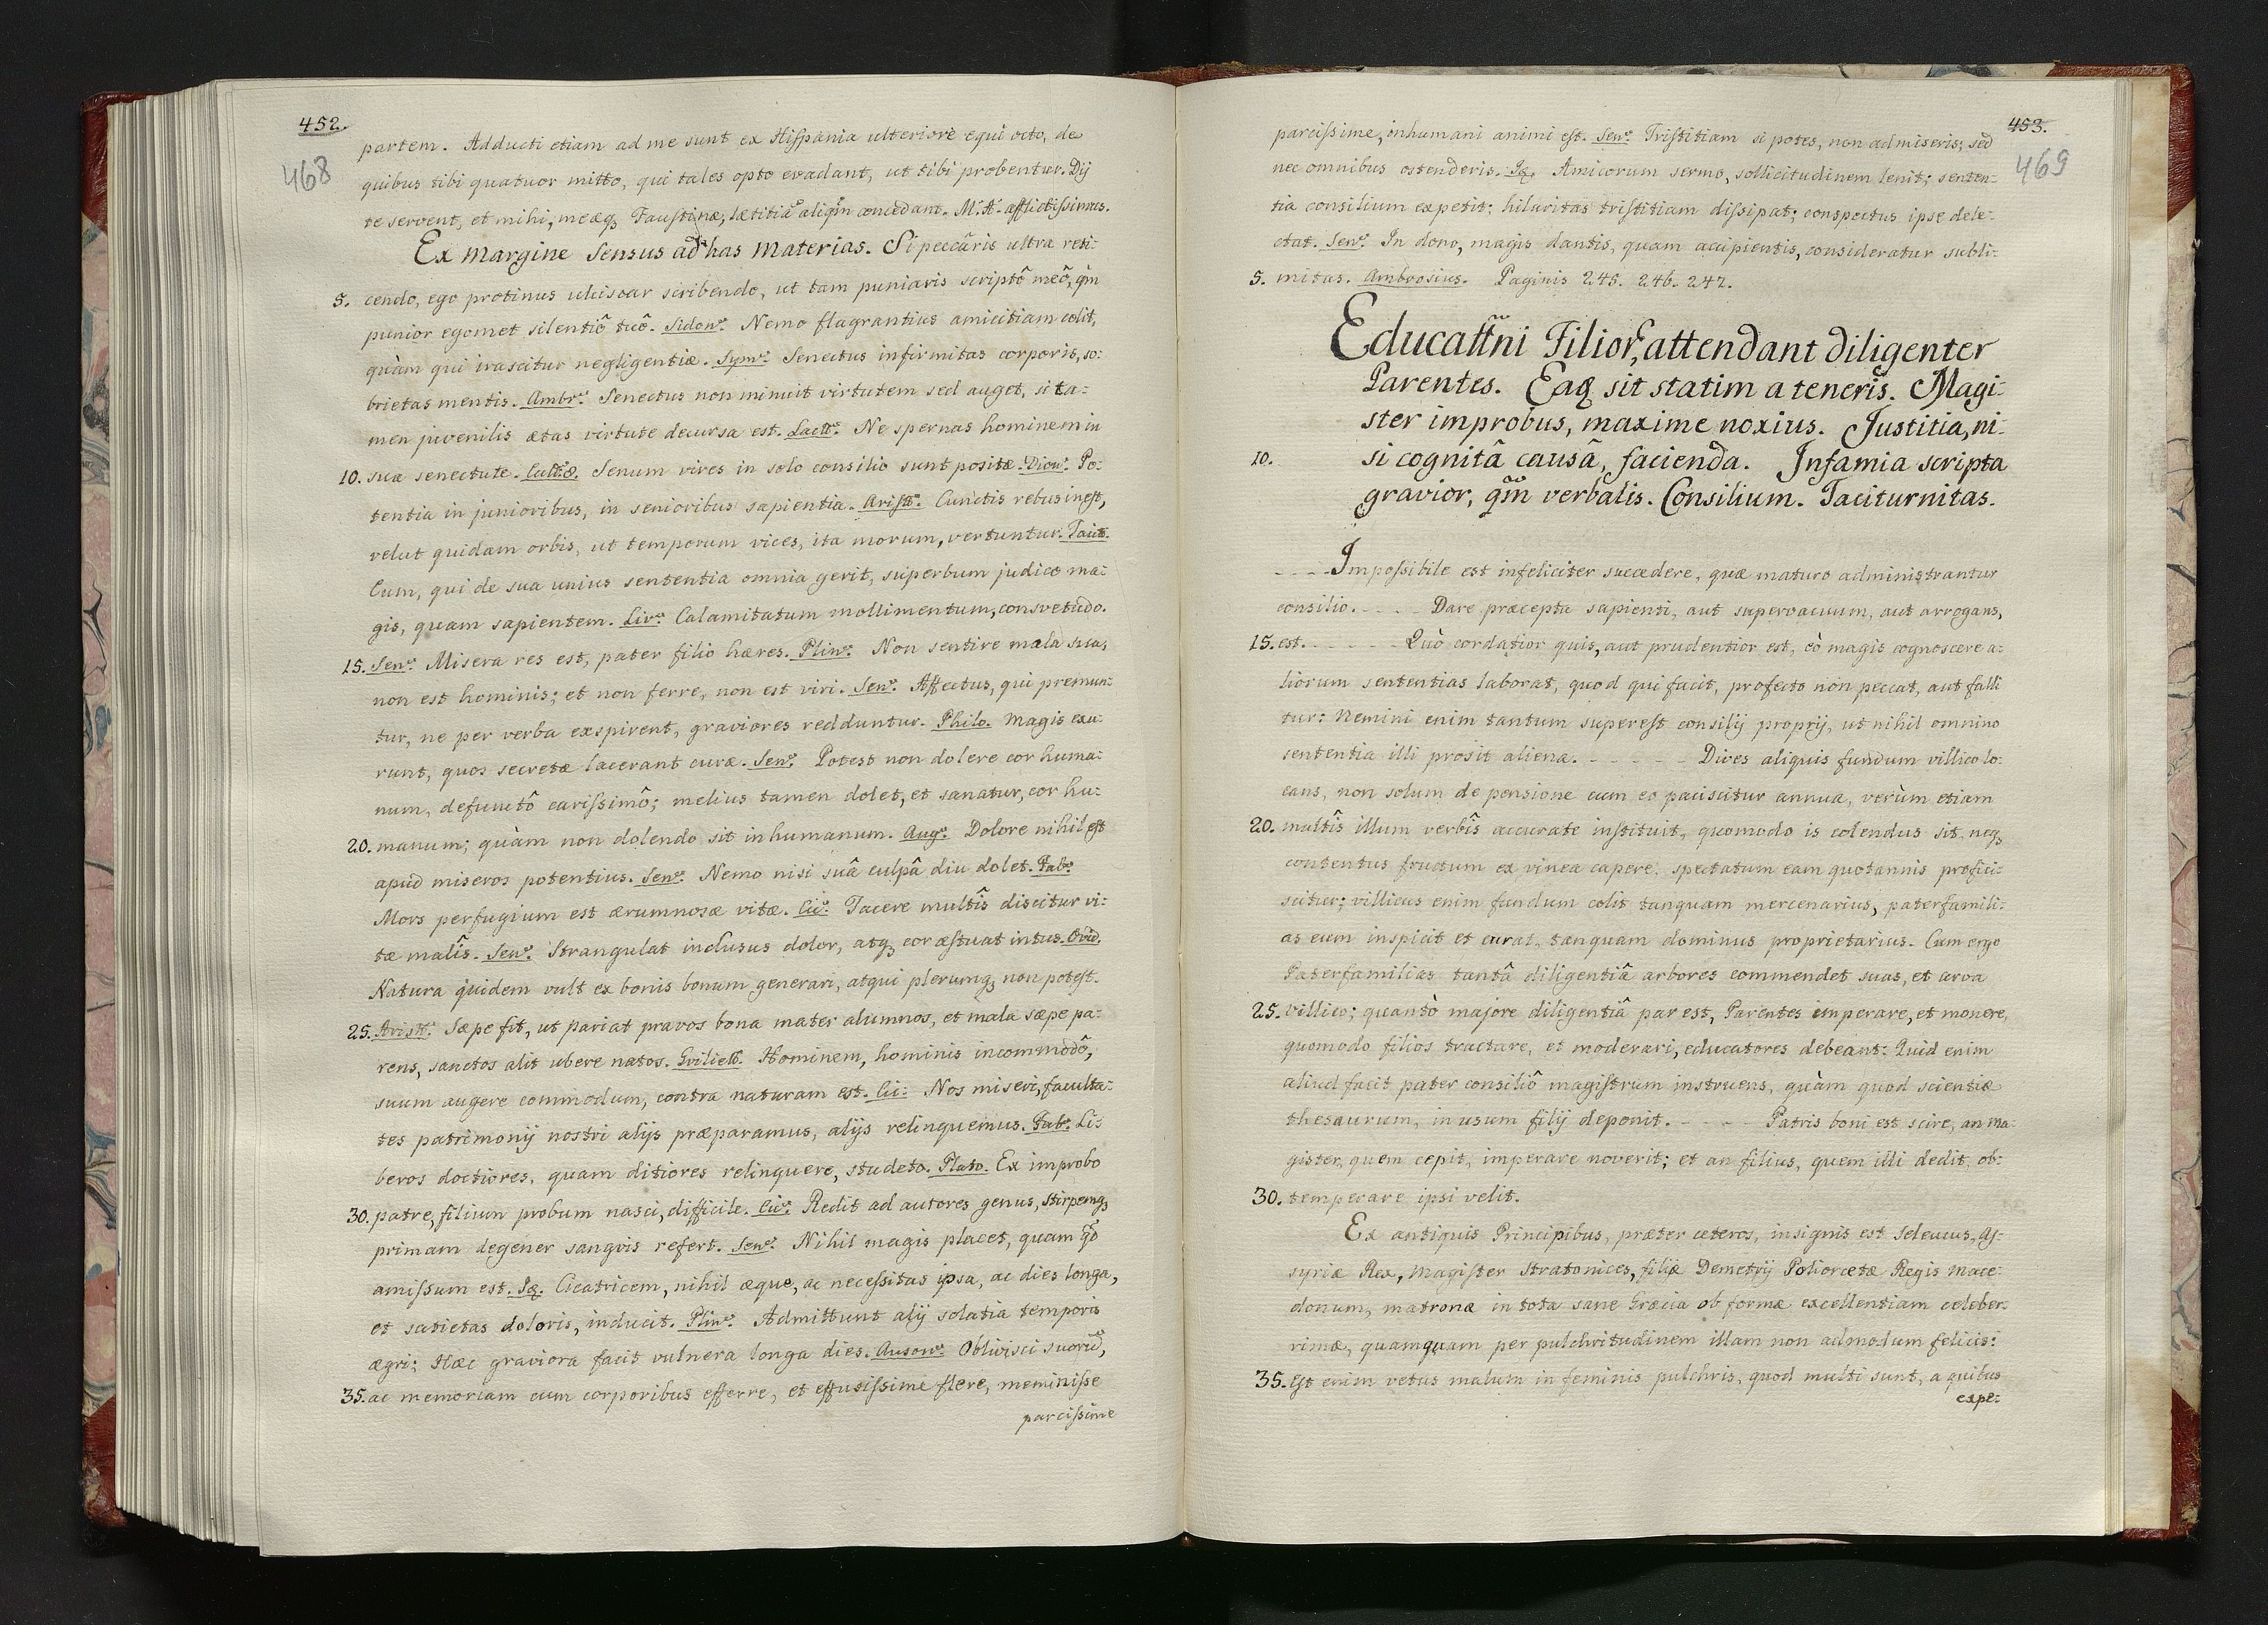 452.
468
partem. Adducti etiam ad me sunt ex Hispania ulteriore equi octo, de
quibus tibi quatuor mitto, qui tales opto evadant, ut tibi probentur. Dij
te servent, et mihi, meæq; Faustinæ, lætitiã aliqm̃ concedant. M. A. afflictissimus.
Ex margine Sensus ad has materias. Si peccâris ultra reti:
5. cendo, ego protinus ulciscar scribendo, ut tam puniaris scriptô meô, qm̃
punior egomet silentiô tuô. Sidon9. Nemo flagrantius amicitiam colit,
quàm qui irascitur negligentiæ. Sym9. Senectus infirmitas corporis, so:
brietas mentis. Ambr9. Senectus non minuit virtutem sed auget, si ta:
men juvenilis ætas virtute decursa est. Lactt9. Ne spernas hominem in
10. sua senectute. Senum vires in solo consilio sunt positæ. Dion9. Po:
tentia in junioribus, in senioribus sapientia. Aristt. Cunctis rebus inest,
velut quidam orbis, ut temporum vices, ita morum, vertuntur. Tacit.
Eum, qui de sua unius sententia omnia gerit, superbum judico ma:
gis, quam sapientem. Liv9. Calamitatum mollimentum, consvetudo.
15. Sen9. Misera res est, pater filio hæres. Plin9. Non sentire mala sua,
non est hominis; et non ferre, non est viri. Sen9. Affectus, qui premun:
tur, ne per verba exspirent, graviores redduntur. Philo. Magis exu:
runt, quos secretæ lacerant curæ. Sen9. Potest non dolere cor huma:
num, defunctô carissimô; melius tamen dolet, et sanatur, cor hu:
20. manum; quàm non dolendo sit inhumanum. Aug9. Dolore nihil est
apud miseros potentius. Sen9. Nemo nisi suâ culpâ diu dolet. Fab9.
Mors perfugium est ærumnosæ vitæ. Cic9. Tacere multîs discitur vi:
tæ malîs. Sen9. Strangulat inclusus dolor, atq; cor æstuat intus. Ovid.
Natura quidem vult ex bonis bonum generari, atqui plerumq; non potest.
25. Aristt. Sæpe fit, ut pariat pravos bona mater alumnos, et mala sæpe pa:
rens, sanctos alit ubere natos. Hominem, hominis incommodô,
suum augere commodum, contra naturam est. Cic: Nos miseri, faculta:
tes patrimonij nostri alijs præparamus, alijs relinquemus. Fab9. Li:
beros doctiores, quam ditiores relinquere, studeto. Plato. Ex improbo
30. patre, filium probum nasci, difficile. Cic9. Redit ad autores genus, stirpemq;
primam degener sangvis refert. Sen9. Nihil magis placet, quam qd̃
amissum est. Iq. Cicatricem, nihil æque, ac necessitas ipsa, ac dies longa,
et satietas doloris, inducit. Plin9. Admittunt alij solatia temporis
ægri; Hæc graviora facit vulnera longa dies. Auson9. Oblivisci suorũ,
35. ac memoriam cum corporibus efferre, et effusissime flere, meminisse
parcissime
453.
469
parcissime, inhumani animi est. Sen9. Tristitiam si potes, non admiseris; sed
nec omnibus ostenderis. Iq. Amicorum sermo, sollicitudinem lenit; senten:
tia consilium expetit; hilaritas tristitiam dissipat; conspectus ipse dele:
ctat. Sen9. In dono, magis dantis, quam accipientis, consideratur subli:
5. mitas. Ambrosius. Paginis 245. 246. 247.
Educattñi Filior, attendant diligenter
Parentes. Eaq sit statim a teneris. Magi:
ster improbus, maxime noxius. Justitia, ni:
10. si cognitâ causâ, facienda. Infamia scripta
gravior, qm̃ verbalis. Consilium. Taciturnitas.
- - - - Impossibile est infeliciter succedere, quæ maturo administrantur
consilio. - - - - Dare præcepta sapienti, aut supervacuum, aut arrogans,
15. est. - - - - - Quò cordatior quis, aut prudentior est, eò magis cognoscere a:
liorum sententias laborat, quod qui facit, profecto non peccat, aut falli
tur: Nemini enim tantum superest consilij proprij, ut nihil omnino
sententia illi prosit aliena. - - - - - Dives aliquis fundum villico lo:
cans, non solum de pensione cum eo paciscitur annua, verùm etiam
20. multîs illum verbîs accurate instituit, quomodo is colendus sit, neq;
contentus fructum ex vinea capere: spectatum eam quotannis profici:
scitur; villicus enim fundum colit tanquam mercenarius, paterfamili:
as eum inspicit et curat, tanquam dominus proprietarius. Cum ergo
Paterfamilias tantâ diligentiâ arbores commendet suas, et arva
25. villico; quantò majore diligentiâ par est, Parentes imperare, et monere,
quomodo filios tractare, et moderari, educatores debeant: Quid enim
aliud facit pater consiliô magistrum instruens, quàm quod scientiæ
thesaurum, in usum filij deponit. - - - - Patris boni est scire, an ma:
gister, quem cepit, imperare noverit; et an filius, quem illi dedit, ob:
30. temperare ipsi velit.
Ex antiquis Principibus, præter ceteros, insignis est Seleucus, As:
syriæ Rex, Magister Stratonices, filiæ Demetrij Poliorcetæ Regis Mace:
donum, matronæ in tota sane Græcia ob formæ excellentiam celeber:
rimæ, quamquam per pulchritudinem illam non admodum felicis:
35. Est enim vetus malum in feminis pulchris, quod multi sunt, a quibus
expe: